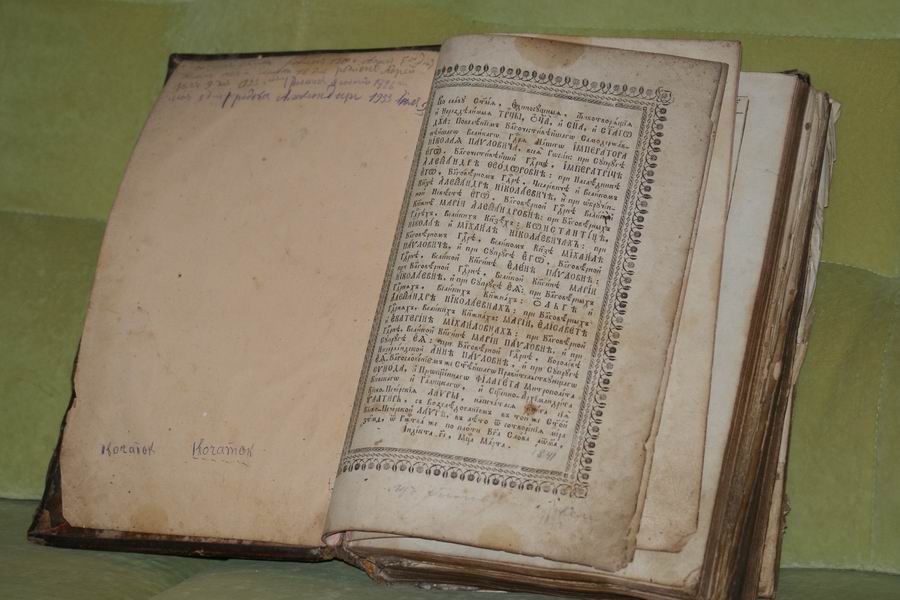 1933
Кочаток Кочаток
Во славу Ст҃ыѧ, Єдиносꙋщныѧ, Животворѧщіѧ
и Нераздѣлимыѧ ТРЦ҃Ы, Ѻ҃ЧА, и СН҃А, и СТ҃АГѠ
ДХ҃А: Повелѣнїемъ Бл҃гочестивѣйшагѡ Самодержав-
нѣйшагѡ Великагѡ Гдⷭ҇рѧ Нашегѡ ІМПЕРАТОРА
НІКОЛАѦ ПАѴЛОВИЧА, всеѧ Рѡссїи: при Сꙋпрꙋгѣ
ЄГѠ, Бл҃гочестивѣйшей Гдⷭ҇рнѣ, ІМПЕРАТРІЦѢ
АЛЕѮАНДРѢ ѲЕОДѠРОВНѢ: при Наслѣдникѣ
ЄГѠ, Бл҃говѣрномъ Гдⷭ҇рѣ, Цесаревичѣ и Великомъ
Кнѧзѣ АЛЕѮАНДРѢ НІКОЛАЕВИЧѢ, и при ѡбрꙋчен-
ной Невѣстѣ ЄГѠ, Бл҃говѣрной Гдⷭ҇рнѣ Великой
Кнѧжнѣ МАРІИ АЛЕѮАНДРОВНѢ: при Бл҃говѣрныхъ
Гдⷭ҇рѣхъ, Великихъ Кнѧзехъ: КѠНСТАНТІНѢ,
НІКОЛАѢ и МІХАИЛѢ НІКОЛАЕВИЧАХЪ: при
Бл҃говѣрномъ Гдⷭ҇рѣ, Великомъ Кнѧзѣ МІХАИЛѢ
ПАѴЛОВИЧѢ, и при Сꙋпрꙋгѣ ЄГѠ, Бл҃говѣрной
Гдⷭ҇рнѣ, Великой Кнѧгинѣ ЄЛЕНѢ ПАѴЛОВНѢ:
при Бл҃говѣрной Гдⷭ҇рнѣ, Великой Кнѧгинѣ МАРІИ
НІКОЛАЕВНѢ, и при Сꙋпрꙋгѣ ЄѦ: при Бл҃говѣрныхъ
Гдⷭ҇рнѧхъ, Великихъ Кнѧжнахъ: Ѻ҆ЛЬГѢ и
АЛЕѮАНДРѢ НІКОЛАЕВНАХЪ: при Бл҃говѣрныхъ
Гдⷭ҇рнѧхъ, Великихъ Кнѧжнахъ: МАРІИ, ЄЛІСАВЕТѢ
и ЄКАТЕРІНѢ МІХАИЛОВНАХЪ: при Бл҃говѣрной
Гдⷭ҇рнѣ, Великой Кнѧгинѣ МАРІИ ПАѴЛОВНѢ, и при
Сꙋпрꙋгѣ ЄѦ: при Бл҃говѣрной Гдⷭ҇рнѣ, Королевѣ
Нидерландской АННѢ ПАѴЛОВНѢ, и при Сꙋпрꙋгѣ
ЄѦ. Бл҃гословенїемъ же Ст҃ѣйшагѡ Правителствꙋющагѡ
СѴНОДА, и Преѡсщ҃еннагѡ ФІЛАРЕТА Митрополіта
Кіевскагѡ и Галицкагѡ, и Сщ҃енно-Архімандріта
Кіево-Печерскіѧ ЛАѴРЫ, напечатасѧ Книга сіѧ
ѰАЛТИРЬ, съ Возслѣдованїемъ въ той же Ст҃ой
Кіево-Печерской ЛАѴРѢ, въ лѣто ѿ сотворенїѧ міра
҂зтм҃ѳ, ѿ Рⷤтва же по плоти Бг҃а Слова ҂аѡм҃а,
Індікта, Мцⷭ҇а Марта.
1841